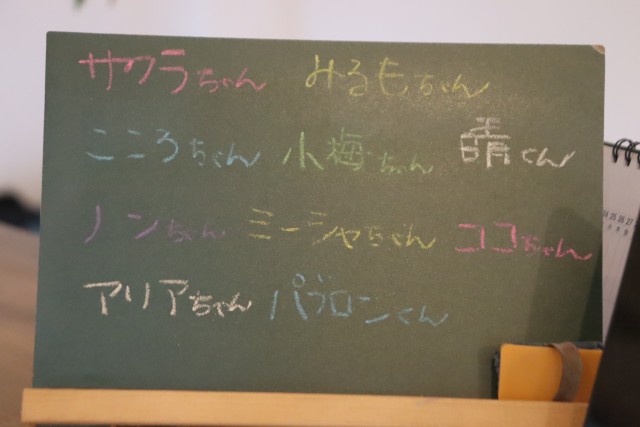 サクラちゃん みるもちゃん
こころちゃん 小梅ちゃん 晴くん
ノンちゃん ミーシャちゃん ココちゃん
アリアちゃん パブロンくん